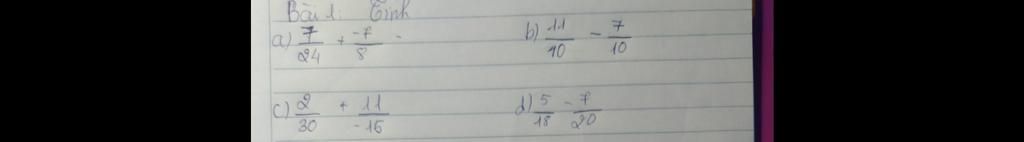 Bài 1: Tính
a) 7/24 + -7/8 b) 11/40 - 7/10
c) 2/30 + 11/-15 d) 5/18 - 7/20